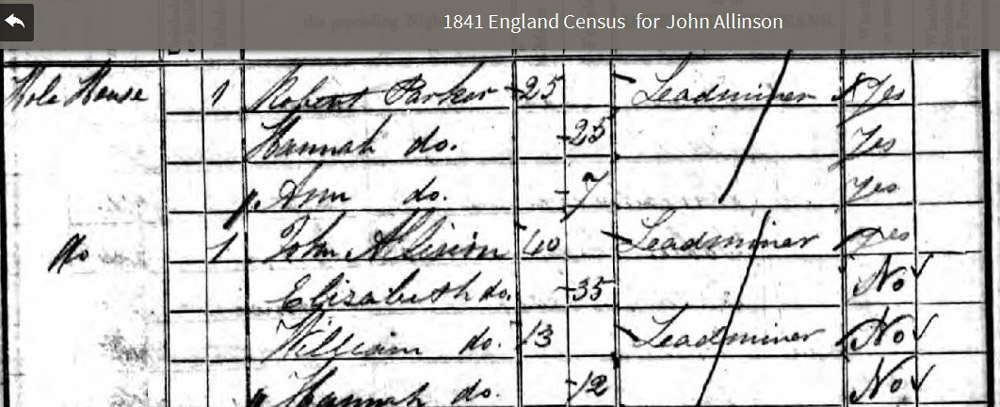 1841 England Census for John Allinson
Hole House 1 Robert Parker 25 Leadminer Yes
Hannah do. 25 Yes
Ann do. 7 Yes
do 1 John Allison 40 Leadminer Yes
Elizabeth do. 35 No
William do. 13 Leadminer No
Hannah do. 12 No